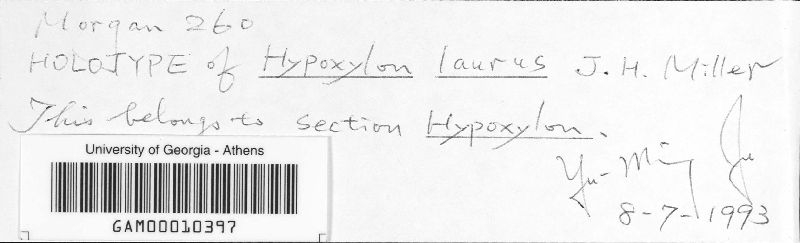 Morgan 260
HOLOTYPE of Hypoxylon laurus J. H. Miller
This belongs to section Hypoxylon.
University of Georgia - Athens
GAM00010397
Yu-Ming Ju
8-7-1993